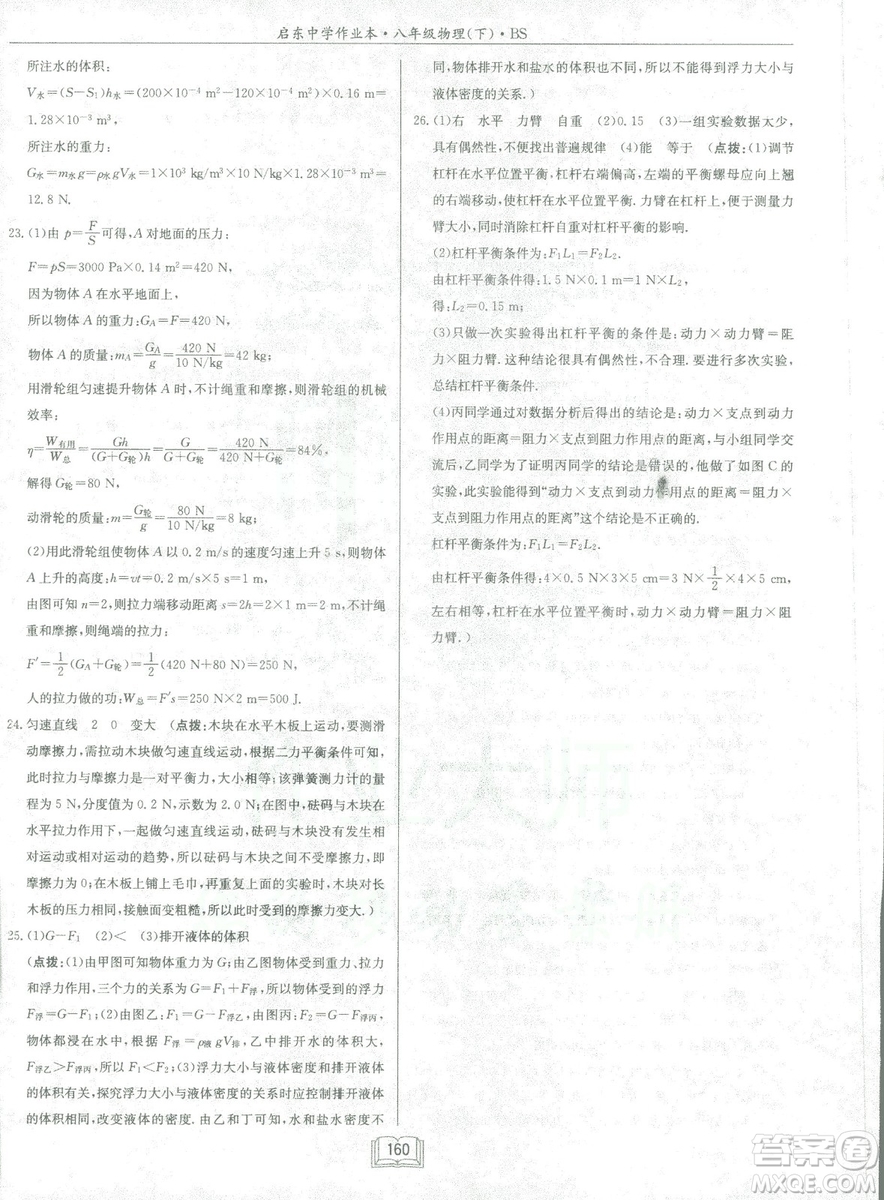 启东中学作业本·八年级物理(下)·BS
所注水的体积:
V水=(S-S₁)h水=(200×10⁻⁴ m²-120×10⁻⁴ m²)×0.16 m=
1.28×10⁻³ m³;
所注水的重力:
G水=m水g=ρ水gV水=1×10³ kg/m³×10 N/kg×1.28×10⁻³ m³=
12.8 N.
23.(1)由 p=F/S可得,A对地面的压力:
F=pS=3000 Pa×0.14 m²=420 N,
因为物体 A 在水平地面上,
所以物体 A 的重力:G_A=F=420 N,
物体 A 的质量:m_A=G_A/g=420 N/10 N/kg=42 kg;
用滑轮组匀速提升物体 A 时,不计绳重和摩擦,则滑轮组的机械
效率:
η=W有用/W总=Gh/(G+G轮)h=G/(G+G轮)=420 N/(420 N+G轮)=84%,
解得 G轮=80 N,
动滑轮的质量:m=G轮/g=80 N/10 N/kg=8 kg;
(2)用此滑轮组使物体 A 以 0.2 m/s 的速度匀速上升 5 s,则物体
A 上升的高度:h=vt=0.2 m/s×5 s=1 m,
由图可知 n=2,则拉力端移动距离 s=2h=2×1 m=2 m,不计绳
重和摩擦,则绳端的拉力:
F′=1/2(G_A+G轮)=1/2(420 N+80 N)=250 N,
人的拉力做的功:W总=F′s=250 N×2 m=500 J.
24.匀速直线 2 0 变大 (点拨:木块在水平木板上运动,要测滑
动摩擦力,需拉动木块做匀速直线运动,根据二力平衡条件可知,
此时拉力与摩擦力是一对平衡力,大小相等;该弹簧测力计的量
程为 5 N,分度值为 0.2 N,示数为 2.0 N;在图中,砝码与木块在
水平拉力作用下,一起做匀速直线运动,砝码与木块间没有相
对运动的趋势,所以砝码与木块之间不受摩擦力,即
摩擦力为 0;在木板上铺上毛巾,再重复上面的实验时,木块对长
木板的压力相同,接触面变粗糙,所以此时受到的摩擦力变大.)
25.(1)G-F₁ (2)< (3)排开液体的体积
(点拨:(1)由甲图可知物体重力为 G;由乙图物体受到重力、拉力
和浮力作用,三个力的关系为:G=F₁+F浮;所以物体受到的浮力
F浮=G-F₁;(2)由图乙:F浮乙=G-F₁;由图丙:F浮丙=G-F₂,
物体都浸没在水中,根据 F浮=ρ液gV排,乙中排开水的体积大,
F浮乙>F浮丙;所以 F₁<F₂;(3)浮力大小与液体密度和排开液体
的体积有关,探究浮力大小与液体的密度关系时应控制排开液体
的体积相同,改变液体的密度. 由乙和丁可知,水和盐水密度不
同,物体排开水和盐水的体积也不同,所以不能研究浮力大小与
液体密度的关系.)
26.(1)右 水平 力臂 自重 (2)0.15 (3)一组实验数据太少,
具有偶然性,不能找出普遍规律 (4)能 等于 (点拨:(1)调节
杠杆在水平位置平衡,杠杆右端偏高,左端的平衡螺母应向上翘
的右端移动,使杠杆在水平位置平衡,杠杆在水平位置,便于测量力
臂大小,同时消除杠杆自重对杠杆平衡的影响.
(2)杠杆平衡条件为:F₁L₁=F₂L₂.
由杠杆平衡条件得:2 N×0.1 m=
得:L₂=0.15 m;
(3)只做一次实验得出杠杆平衡的条件是:动力×动力臂=阻
力×阻力臂. 这种结论很具有偶然性,不合理. 要进行多次实验,
总结杠杆平衡条件.
(4)丙同学通过对数据分析后得出的结论是:动力×支点到动力
作用点的距离=阻力×支点到阻力作用点的距离,与小组同学交
流后,乙同学为了证明丙同学的结论是错误的,他做了如图 C 的
实验,此实验能得到“动力×支点到动力作用点的距离=阻力×
支点到阻力作用点的距离”这个结论是不正确的.
杠杆平衡条件为:F₁L₁=F₂L₂.
由杠杆平衡条件得:4×0.5 N×3×5 cm=3×0.5 N×1/2×4×5 cm,
左右相等,杠杆在水平位置平衡时,动力×动力臂=阻力×阻
力臂.)
160
答案圈
MXQE.COM